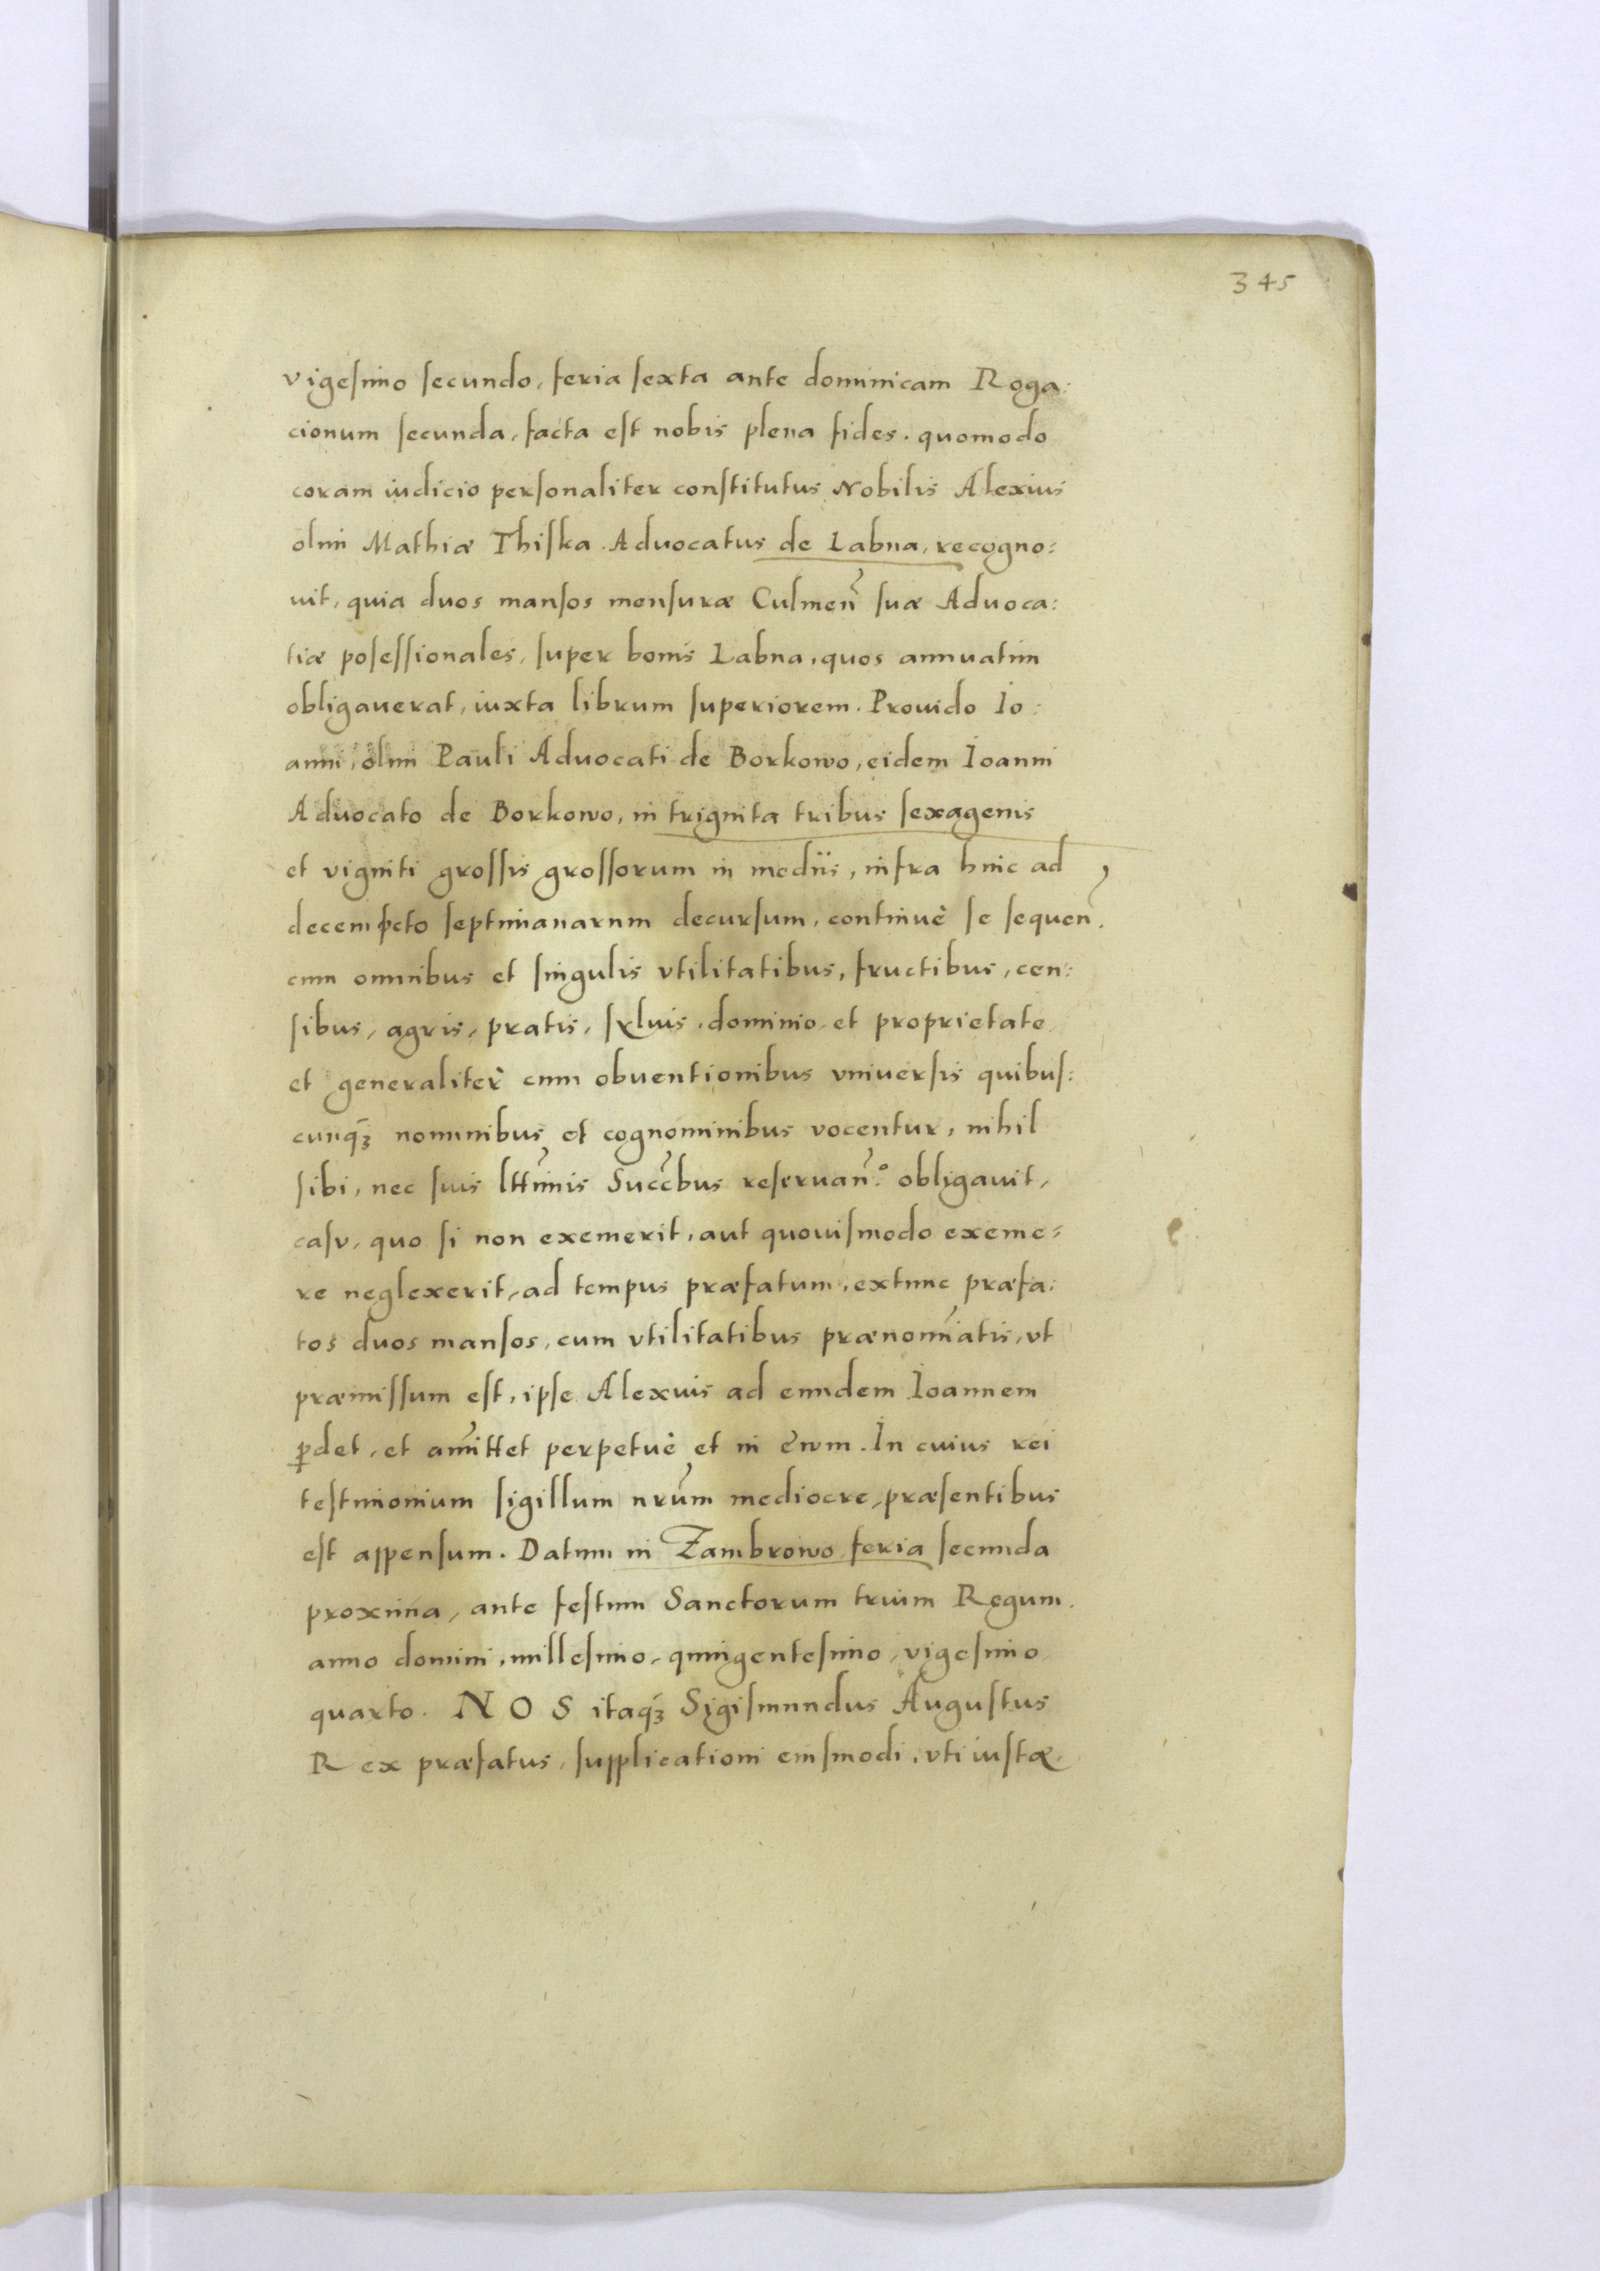 345
vigesimo secundo, feria sexta ante dominicam Roga:
cionum secunda, facta est nobis plena fides. quomodo
coram iudicio personaliter constitutus Nobilis Alexius
olim Mathiæ Thiska Aduocatus de Labna, recogno:
uit, quia duos mansos mensuræ Culmen̄ suæ Aduoca:
tiæ posessionales, super bonis Labna, quos annuatim
obligauerat, iuxta librum superiorem. Prouido Io:
anni, olim Pauli Aduocati de Borkowo, eidem Ioanni
Aduocato de Borkowo, in triginta tribus sexagenis
et viginti grossis grossorum in mediis, infra hinc ad
decem octo septimanarum decursum, continuè se sequen̄.
cum omnibus et singulis vtilitatibus, fructibus, cen:
sibus, agris, pratis, syluis, dominio et proprietate
et generaliter cum obuentionibus vniuersis quibus:
cunqꝫ nominibus et cognominibus vocentur, nihil
sibi, nec suis lttimis Succ̄bus reseruan̄. obligauit,
casu, quo si non exemerit, aut quouismodo exeme:
re neglexerit, ad tempus præfatum, extunc præfa:
tos duos mansos, cum vtilitatibus prænomīatis, vt
præmissum est, ipse Alexius ad eundem Ioannem
ꝑdet, et amittet perpetuè et in æwm. In cuius rei
testimonium sigillum nr̄um mediocre, præsentibus
est appensum. Datum in Zambrowo feria secunda
proxima, ante festum Sanctorum trium Regum.
anno domini, millesimo, quingentesimo, vigesimo
quarto. NOS itaqꝫ Sigismundus Augustus
Rex præfatus, supplicationi eiusmodi, vti iustæ,